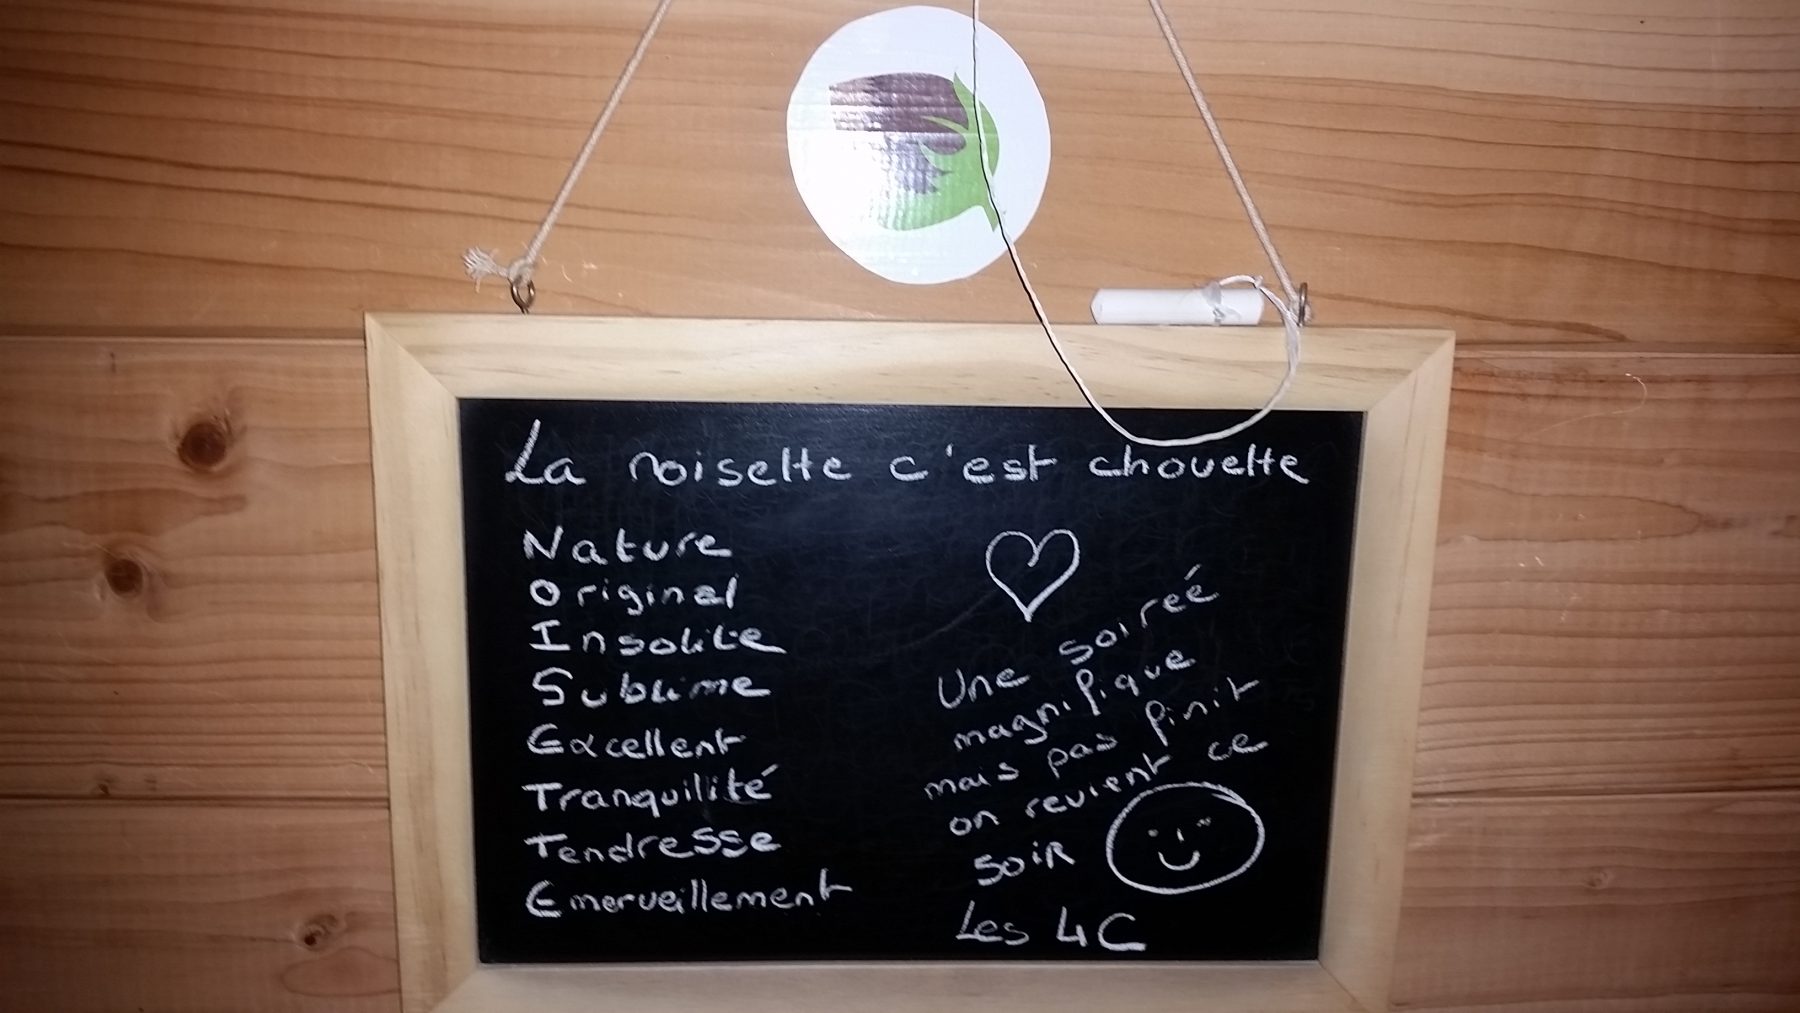 La noisette c'est chouette
Nature
Original
Insolite
Sublime
Excellent
Tranquilité
Tendresse
Emerveillement
Une soireé
magnifique
mais pas finit
on revient ce
soiR
Les 4C